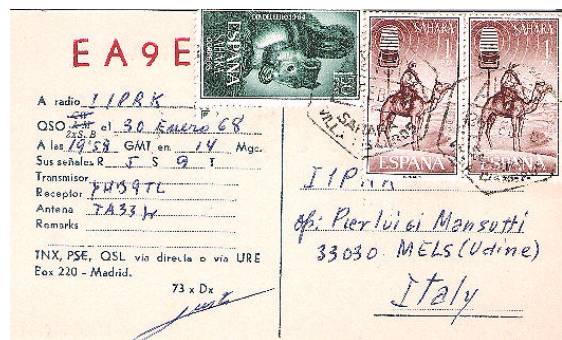 EA9E
A radio I1PRK
QSO 2xS.B el 30 Enero 68
A las 19:58 GMT en 14 Mgc.
Sus señales R 5 S 9 T
Transmisor
Receptor
Antena TA33
Remarks
TNX, PSE, QSL via directa o via URE
Box 220 - Madrid.
73 x Dx
ESPAÑA
SAHARA
SAHARA
1
ESPAÑA
SAHARA
1
ESPAÑA
op: Pierluigi Mansutti
33030 MELS (Udine)
Italy